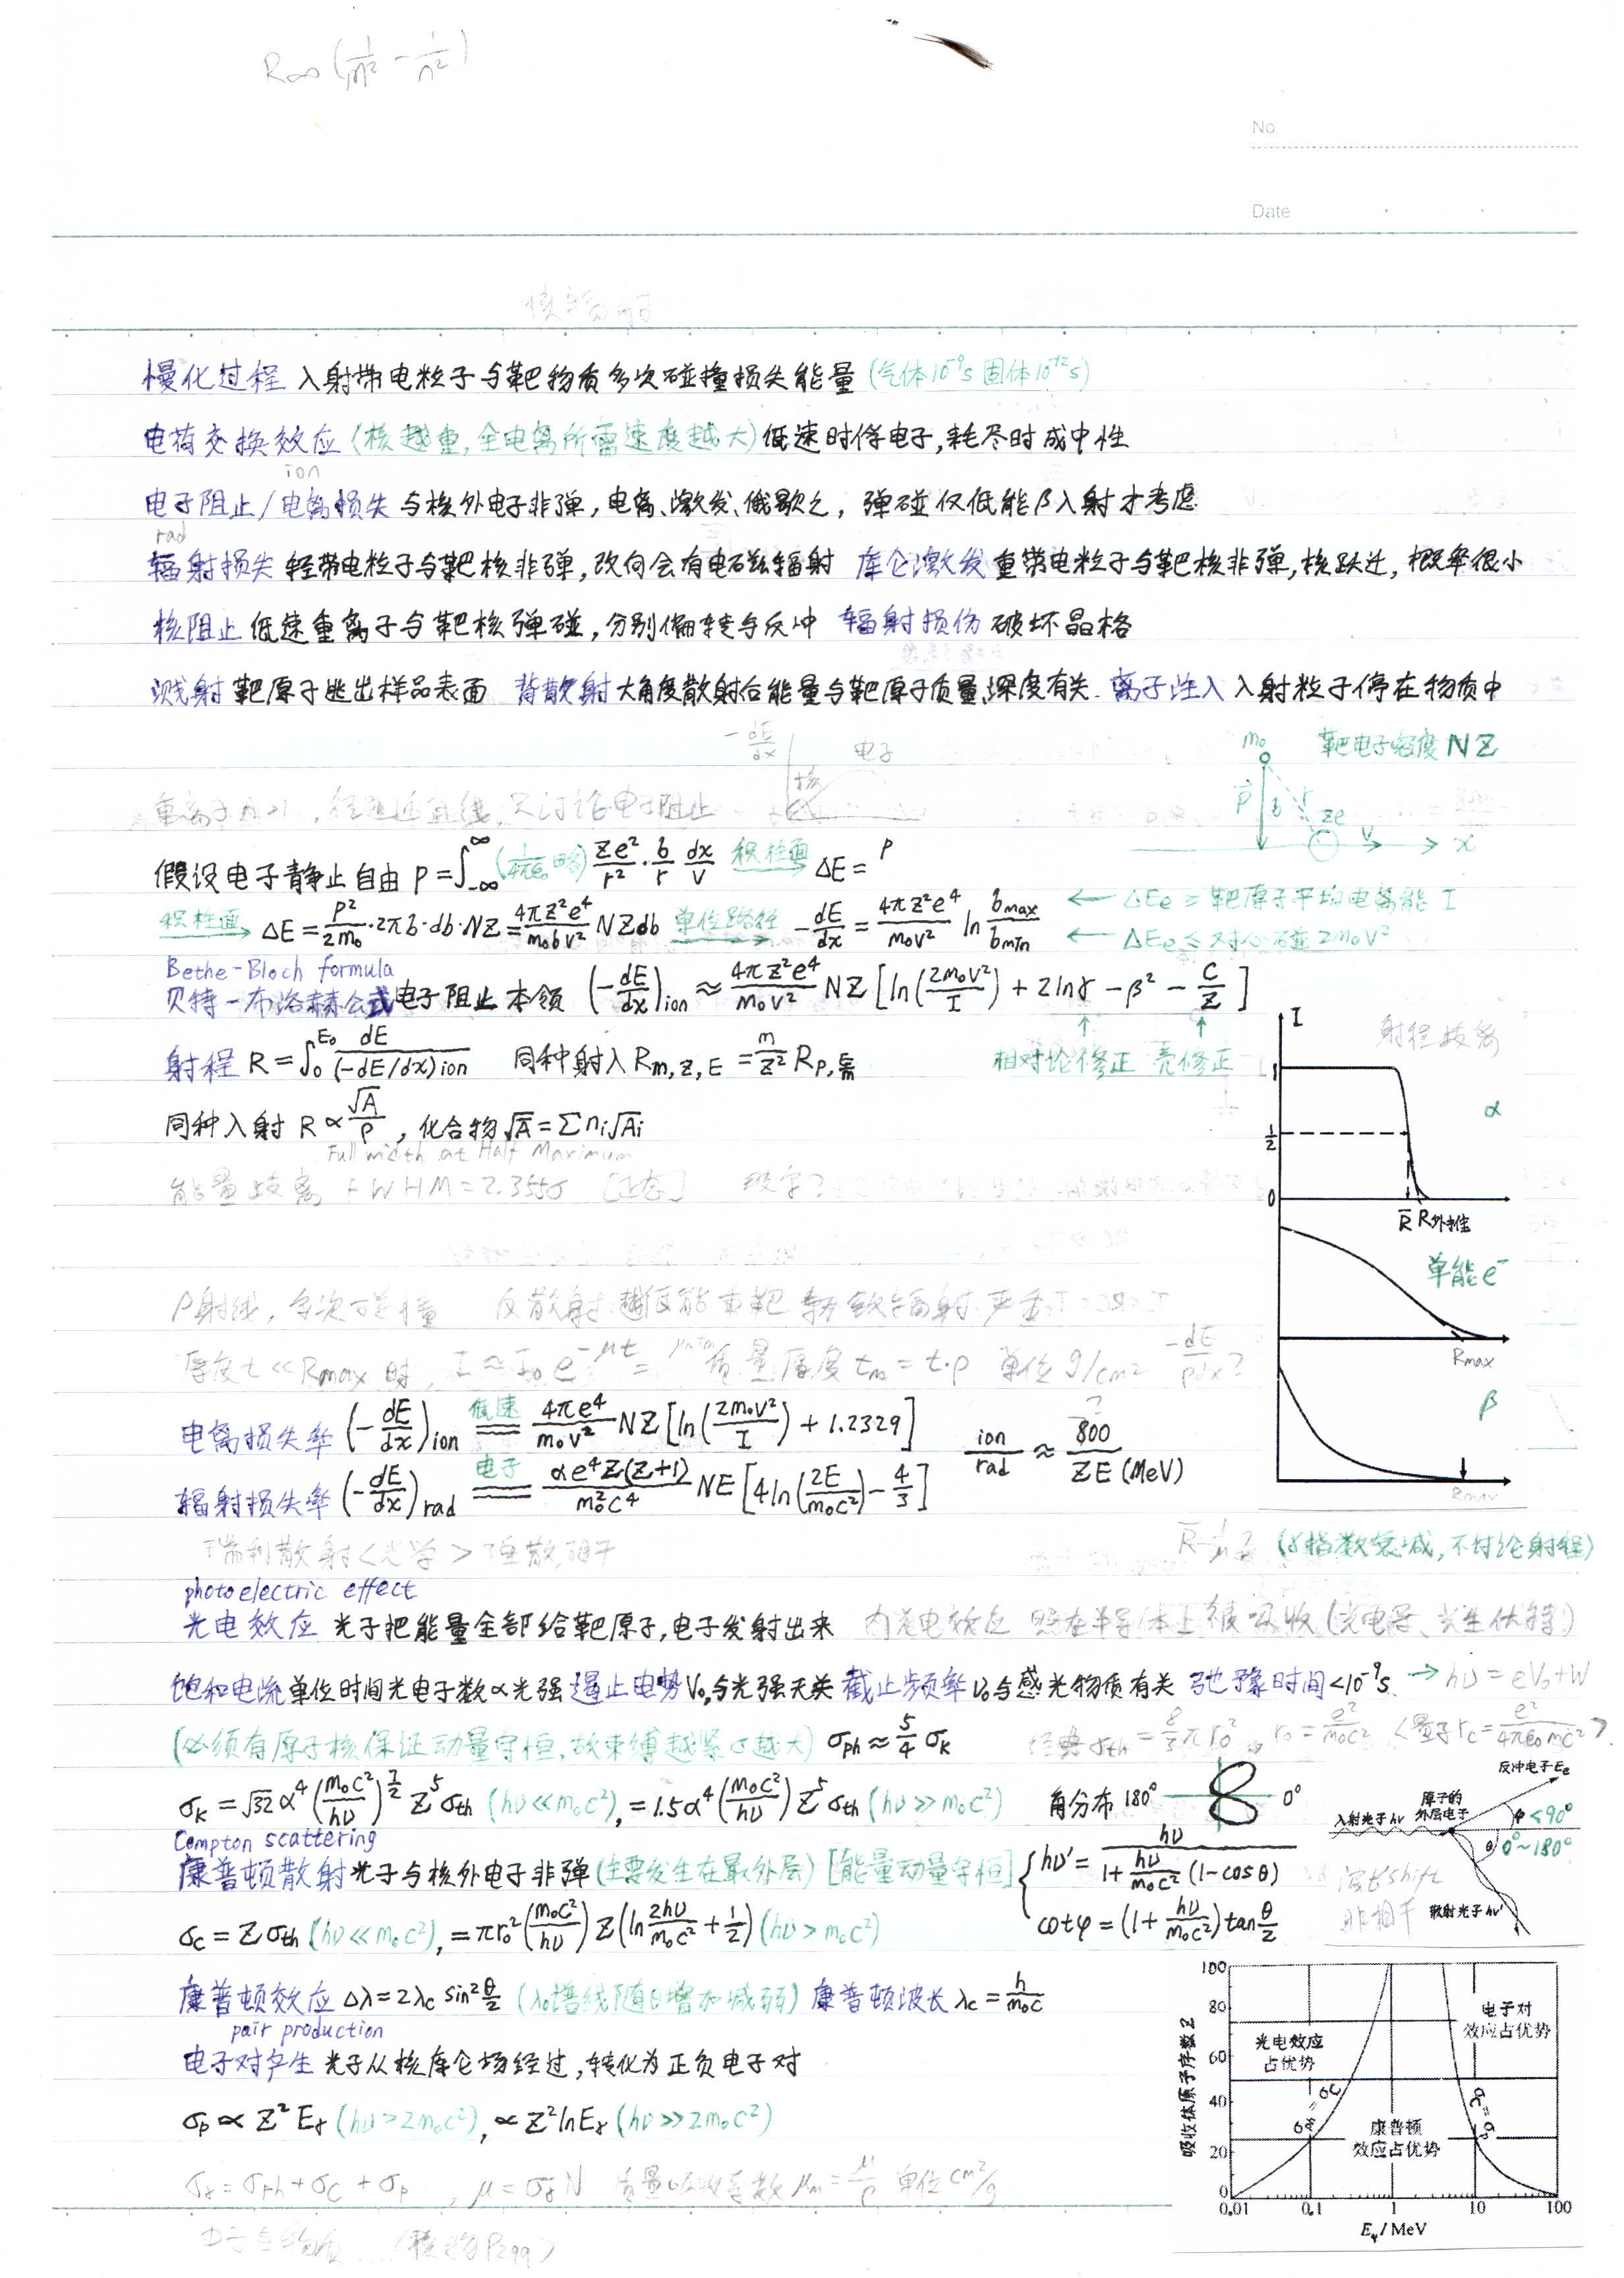 R∞(1/m² - 1/n²)
No
Date
慢化过程 入射带电粒子与靶物质多次碰撞损失能量(气体10⁻⁹s 固体10⁻¹²s)
电荷交换效应(核越重,全电离所需速度越大)低速时俘电子,耗尽时成中性
ion
电子阻止/电离损失 与核外电子非弹,电离、激发、俄歇之,弹碰仅低能β入射才考虑
rad
辐射损失 轻带电粒子与靶核非弹,改向会有电磁辐射 库仑激发 重带电粒子与靶核非弹,核跃迁,概率很小
核阻止 低速重离子与靶核弹碰,分别偏转与反冲 辐射损伤 破坏晶格
溅射 靶原子逃出样品表面 背散射 大角度散射后能量与靶原子质量,深度有关 离子注入 入射粒子停在物质中
-dE/dx 电子
核
m₀ 靶电子密度NZ
P b r ze v x
只讨论电子阻止
假设电子静止自由 P=∫_{-∞}^{∞}(1/4πε₀ 略) ze²/r² · b/r dx/v 积柱面 ΔE= P
积柱面 ΔE=P²/2m₀·2πb·db·NZ=4πz²e⁴/m₀bv² NZdb 单位路径 -dE/dx=4πz²e⁴/m₀v² ln bmax/bmin
← ΔEe ≥ 靶原子平均电离能 I
← ΔEe ≤ 对心碰 2m₀v²
Bethe-Bloch formula
贝特-布洛赫公式 电子阻止本领 (-dE/dx)ion ≈ 4πz²e⁴/m₀v² NZ[ln(2m₀v²/I) + 2lnγ - β² - C/Z]
↑ ↑
相对论修正 壳修正
射程 R=∫₀^{E₀} dE/(-dE/dx)ion 同种射入 R_{m,z,E}=m/z² R_{p,E/m}
同种入射 R∝√A/ρ , 化合物√A=Σni√Ai
Full width at Half Maximum
能量歧离 FWHM=2.355σ [正态]
I 射程歧离
1
α
1/2
0
R̄ R外推
单能e⁻
Rmax
β
Rmax
β射线, 反散射
厚度t≪Rmax时, I≈I₀e^{-μt} 质量厚度 tm=t·ρ 单位g/cm² -dE/ρdx?
电离损失率 (-dE/dx)ion 低速 = 4πe⁴/m₀v² NZ[ln(2m₀v²/I)+1.2329] ion/rad ≈ 800/ZE(MeV) ?
辐射损失率 (-dE/dx)rad 电子 = αe⁴Z(Z+1)/m₀²c⁴ NE[4ln(2E/m₀c²)-4/3]
瑞利散射<光学>
(γ指数衰减,不讨论射程)
photoelectric effect
光电效应 光子把能量全部给靶原子,电子发射出来 内光电效应 照在半导体上被吸收(光电导、光生伏特)
饱和电流 单位时间光电子数∝光强 遏止电势V₀,与光强无关 截止频率ν₀与感光物质有关 弛豫时间<10⁻⁹s. → hν=eV₀+W
(必须有原子核保证动量守恒,故束缚越紧σ越大) σph≈5/4 σK 经典σth=8/3 πr₀², r₀=e²/m₀c² <量子rc=e²/4πε₀mc²>
σK=√32 α⁴(m₀c²/hν)^{7/2} Z⁵σth (hν≪m₀c²), =1.5α⁴(m₀c²/hν)Z⁵σth (hν≫m₀c²) 角分布 180° 0°
Compton scattering
康普顿散射 光子与核外电子非弹(主要发生在最外层)[能量动量守恒] { hν'=hν/(1+hν/m₀c²(1-cosθ))
cotφ=(1+hν/m₀c²)tanθ/2
反冲电子Ee
原子的
外层电子
入射光子hν
φ<90°
θ 0°~180°
散射光子hν'
波长shift
非相干
σc=Zσth(hν≪m₀c²), =πr₀²(m₀c²/hν)Z(ln 2hν/m₀c²+1/2)(hν>m₀c²)
康普顿效应 Δλ=2λc sin²θ/2 (λ₀谱线随θ增加减弱) 康普顿波长 λc=h/m₀c
pair production
电子对产生 光子从核库仑场经过,转化为正负电子对
σp∝Z²Eγ(hν>2m₀c²), ∝Z²lnEγ(hν≫2m₀c²)
σγ=σph+σc+σp , μ=σγN 质量吸收系数μm=μ/ρ 单位cm²/g
吸收体原子序数Z
100
80
60
40
20
0
光电效应
占优势
电子对
效应占优势
康普顿
效应占优势
σc=σp
0.01 0.1 1 10 100
Eγ/MeV